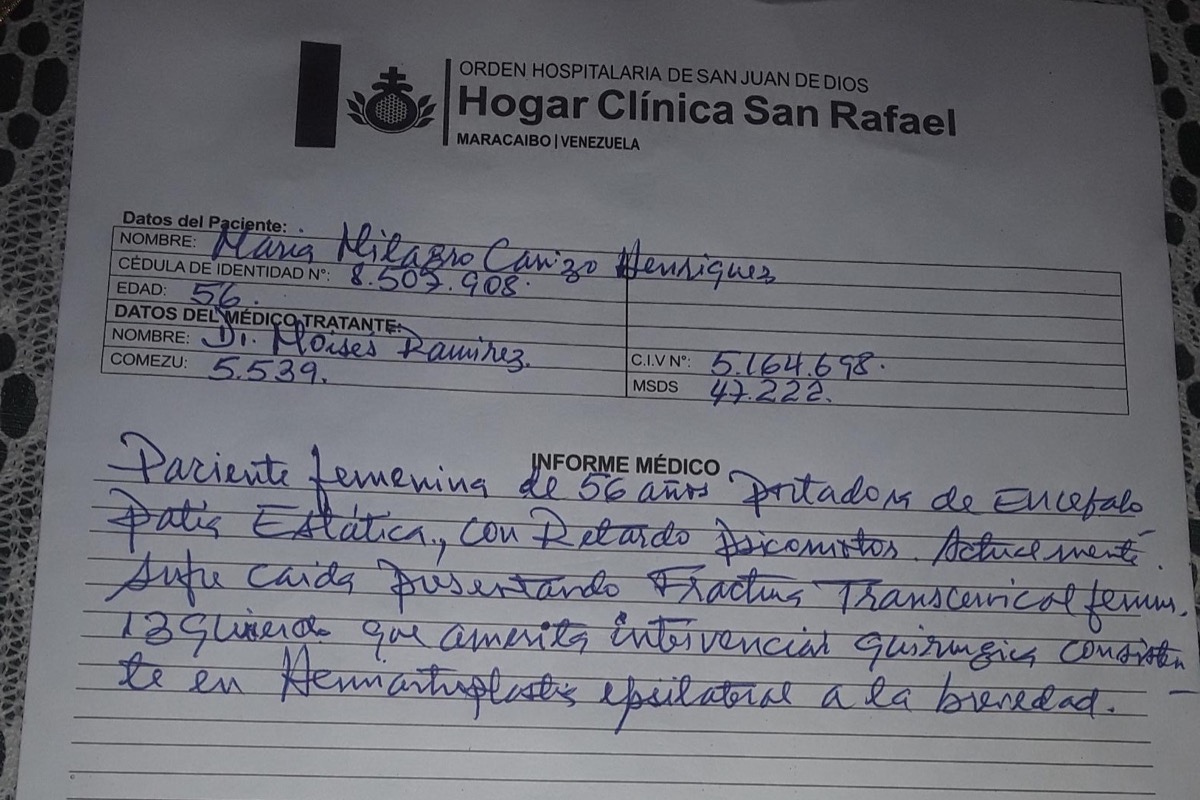 ORDEN HOSPITALARIA DE SAN JUAN DE DIOS
Hogar Clínica San Rafael
MARACAIBO | VENEZUELA
Datos del Paciente:
NOMBRE: Maria Milagro Carizo Henriquez
CÉDULA DE IDENTIDAD N°: 8.507.908.
EDAD: 56.
DATOS DEL MÉDICO TRATANTE:
NOMBRE: Dr. Moises Ramirez.
COMEZU: 5.539.
C.I.V N°: 5.164.698.
MSDS 47.222.
INFORME MÉDICO
Paciente femenina de 56 años portadora de Encefalo
patia Estática, con Retardo psicomotor. Actualmente
sufre caida presentando Fractura Transcervical femur
izquierdo que amerita intervencion quirurgica consisten
te en Hemiartroplastia epsilateral a la brevedad.